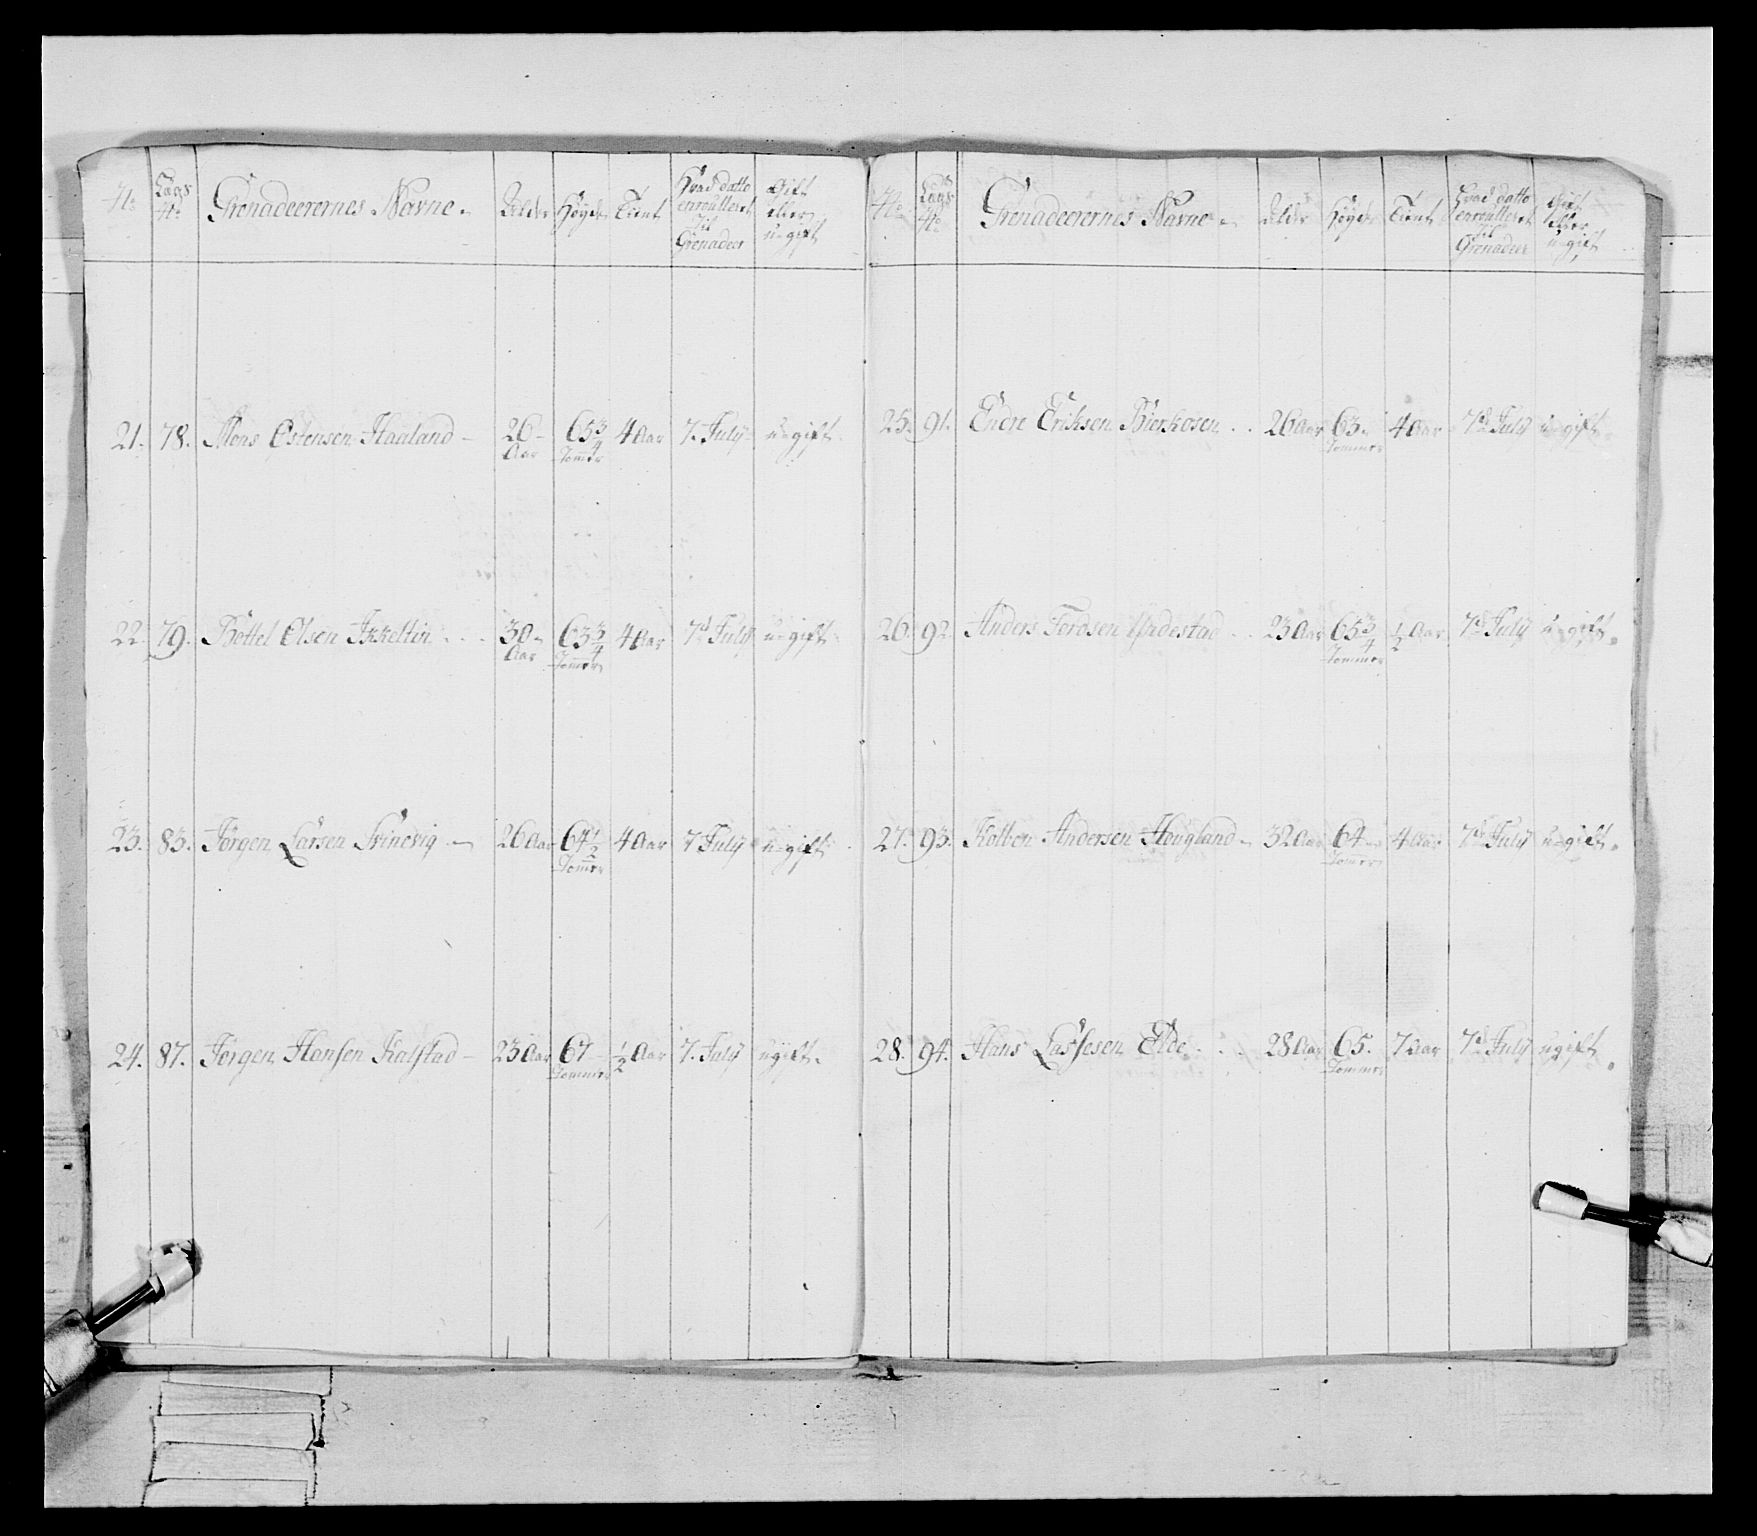 No
Lægs No
Grenadeerernes Navne
Alder
Høyde
Tient
Hvad datto enroulleret til Grenadeer
Gift eller ugift
21. 78. Mons Østensen Haaland 26 Aar 65 3/4 Tommer 4 Aar 7. July ugift
22. 79. Bottel Olsen 30 Aar 63 3/4 Tommer 4 Aar 7d July ugift
23. 83. Jörgen Larsen Svinevig 26 Aar 64 1/2 Tommer 4 Aar 7 July ugift
24. 87. Jörgen Hansen Kalstad 23 Aar 67 Tommer 1/2 Aar 7. July ugift
No
Lægs No
Grenadeerernes Navne
Alder
Høyde
Tient
Hvad datto enroulleret til Grenadeer
Gift eller ugift
25. 91. Endre Eriksen 26 Aar 63 Tommer 4 Aar 7d July ugift
26. 92. Anders 23 Aar 65 3/4 Tommer 1/2 Aar 7d July ugift
27. 93. Andersen Hougland 32 Aar 64 Tommer 4 Aar 7d July ugift
28. 94. Hans Lassesen Elde 28 Aar 65. Tommer 7 Aar 7d July ugift